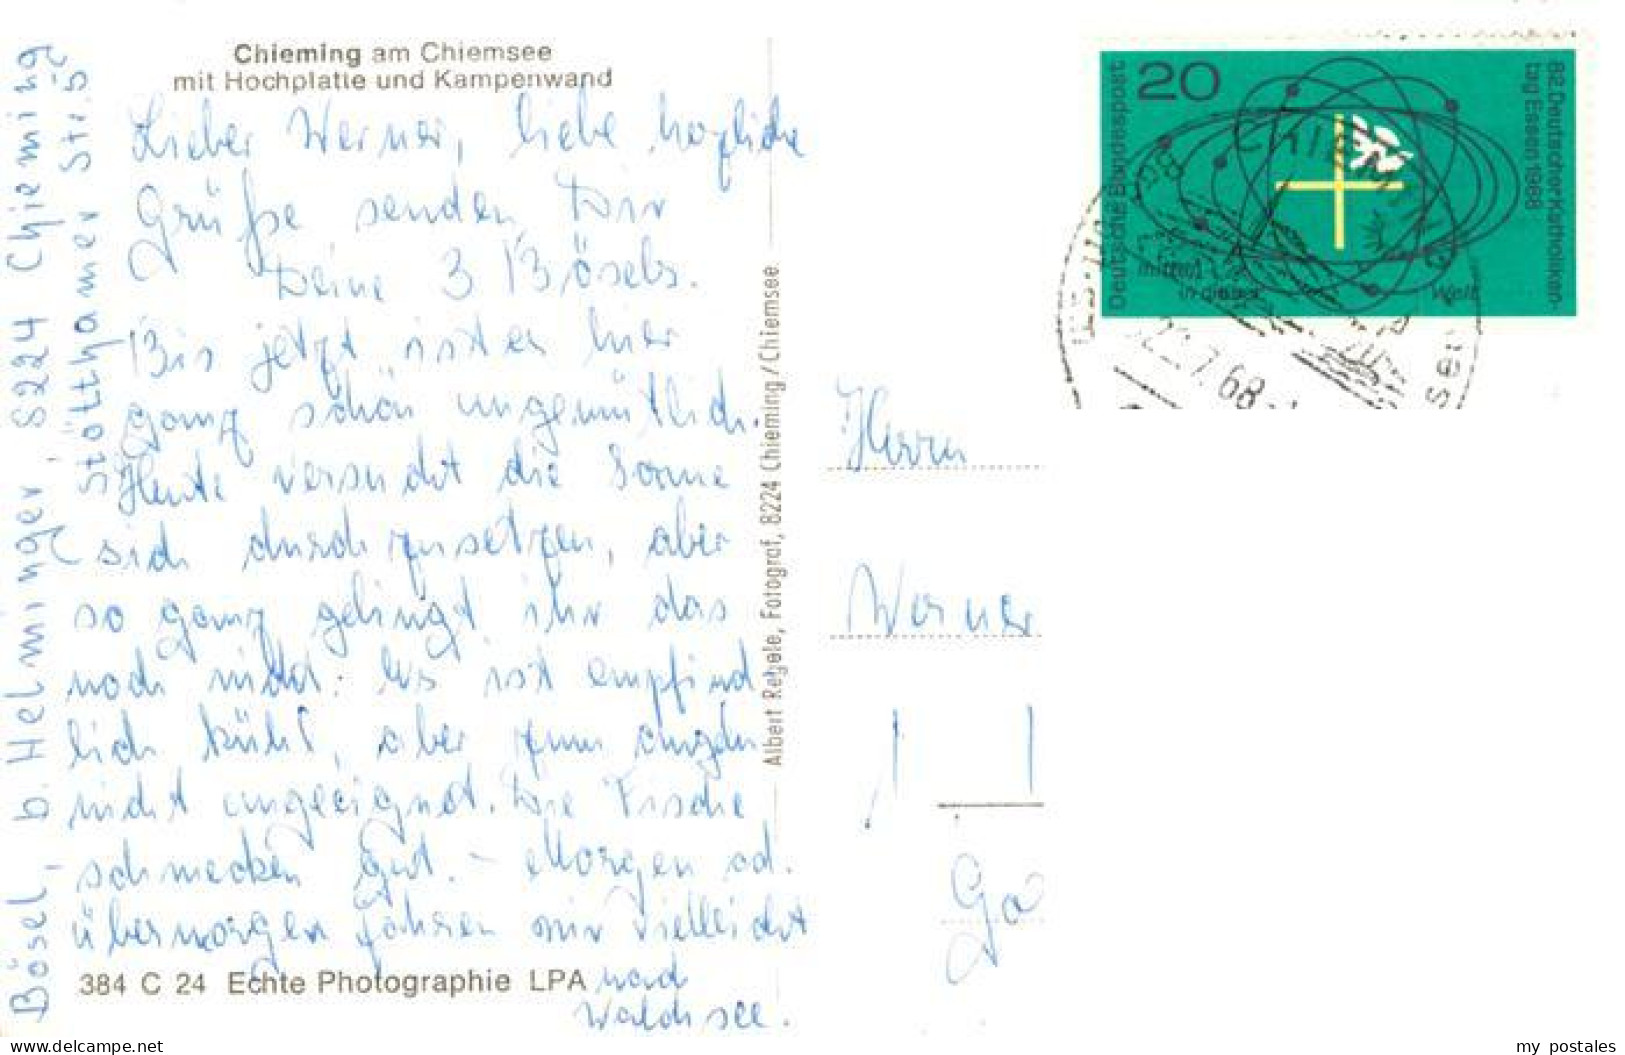 Chieming am Chiemsee
mit Hochplatte und Kampenwand
Lieber Werner, liebe herzliche
Grüße senden Dir
Deine 3 Bösels.
Bis jetzt ist es hier
ganz schön ungemütlich.
Heute versucht die Sonne
sich durchzusetzen, aber
so ganz gelingt ihr das
noch nicht. Es ist empfind
lich kühl, aber zum angeln
nicht ungeeignet. Die Fische
schmecken gut. – Morgen od.
übermorgen fahren wir vielleicht
nach
Walchsee.
384 C 24 Echte Photographie LPA
Bösel, b. Helminger, 8224 Chieming
Stötthamer Str. 5
Albert Regele, Fotograf, 8224 Chieming/Chiemsee
Deutsche Bundespost
20
82. Deutscher Katholiken-
tag Essen 1968
mitten
in dieser Welt
CHIEMING
22.7.68
Herrn
Werner
Ga
delcampe.net
my_postales